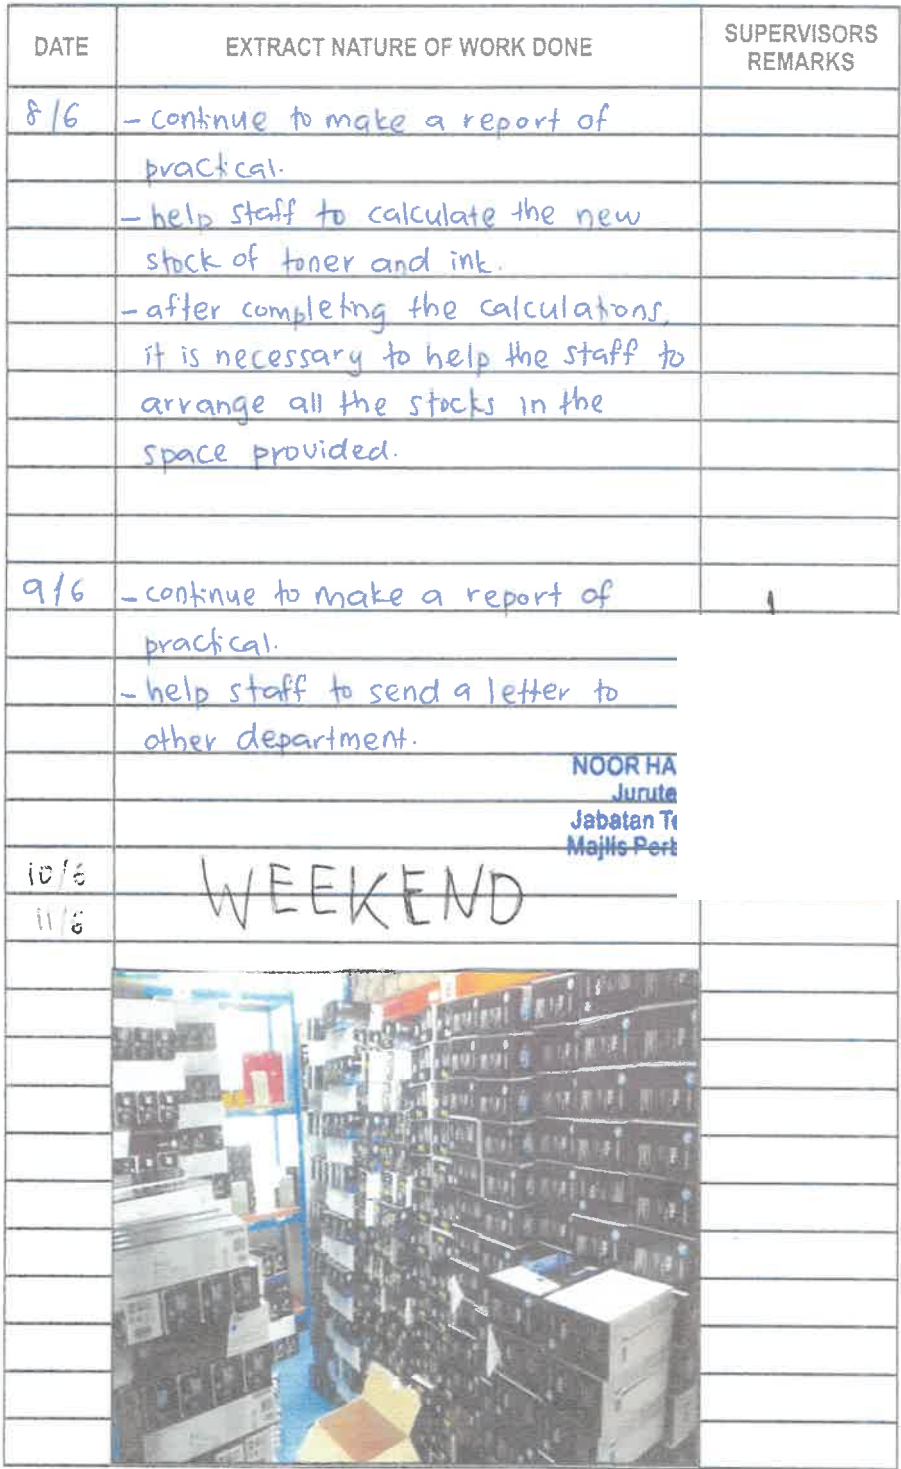 DATE EXTRACT NATURE OF WORK DONE SUPERVISORS REMARKS
8/6 - continue to make a report of
practical.
- help staff to calculate the new
stock of toner and ink.
- after completing the calculations,
it is necessary to help the staff to
arrange all the stocks in the
space provided.
9/6 - continue to make a report of
practical.
- help staff to send a letter to
other department.
NOOR HA
Jurute
Jabatan Te
Majlis Perb
10/6 WEEKEND
11/6